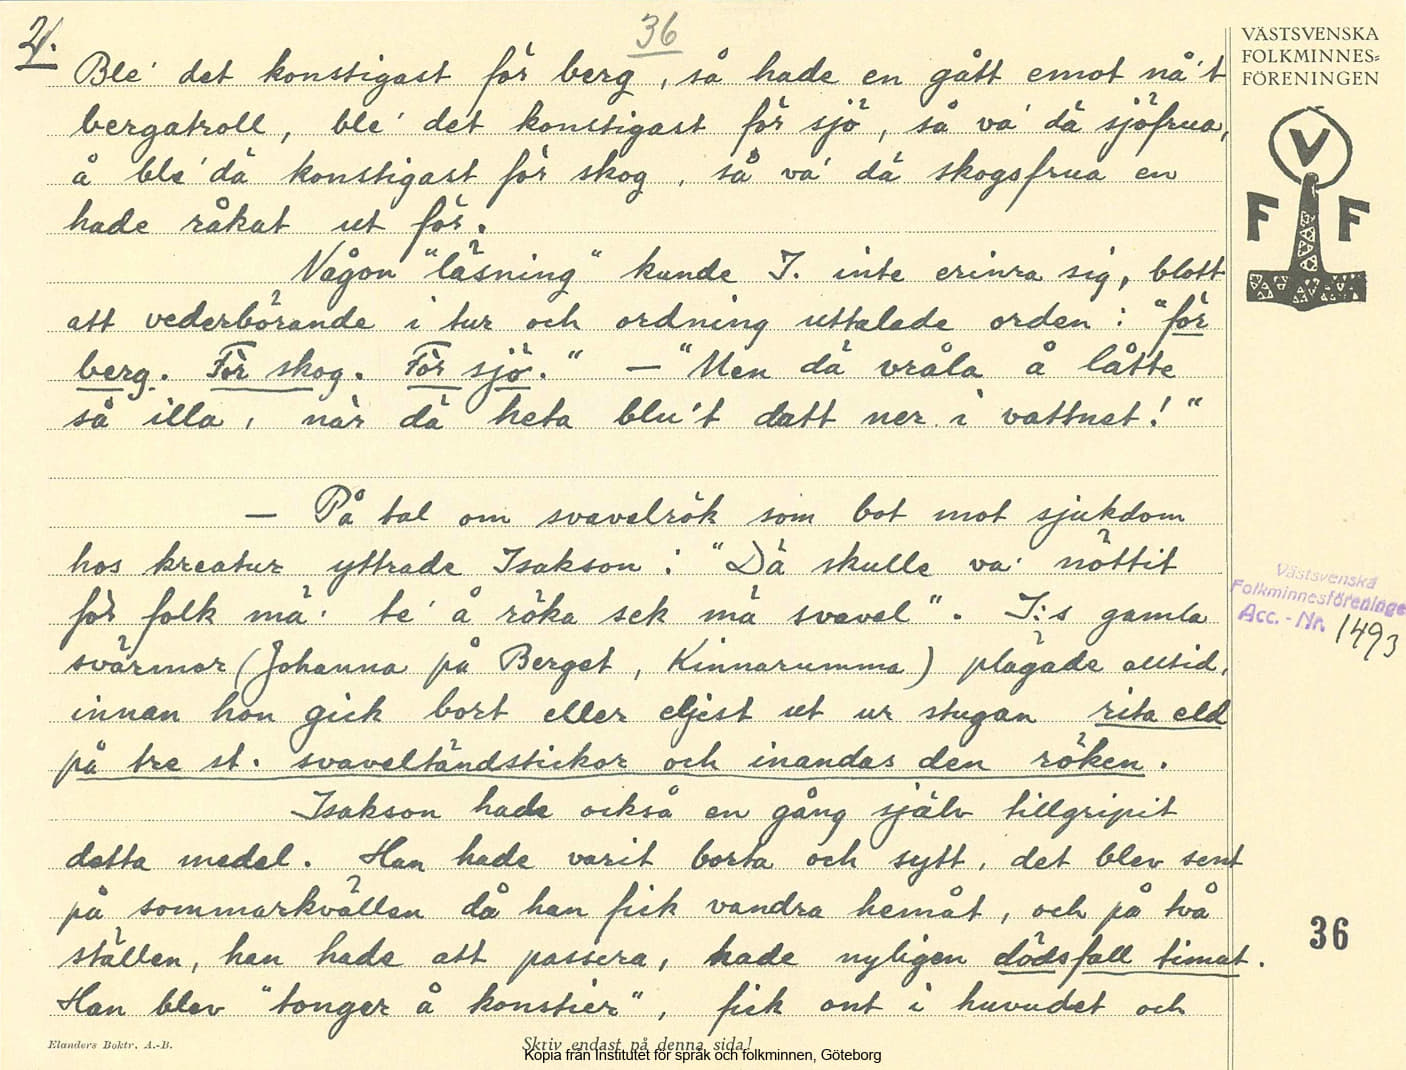 2.
36
VÄSTSVENSKA
FOLKMINNES=
FÖRENINGEN
V
F F
Ble' det konstigast för berg, så hade en gått emot nå't
bergatroll, ble' det konstigast för sjö, så va' dä sjöfrua,
å ble' dä konstigast för skog, så va' dä skogsfrua en
hade råkat ut för.
Någon "läsning" kunde I. inte erinra sig, blott
att vederbörande i tur och ordning uttalade orden: "för
berg. För skog. För sjö." — "Men dä vråla å låtte
så illa, når dä heta blu't datt ner i vattnet!"
— På tal om svavelrök som bot mot sjukdom
hos kreatur yttrade Isakson: "Dä skulle va' nöttit
för folk mä' te' å röka sek mä svavel". I:s gamla
svärmor (Johanna på Berget, Kinnarumma) plägade alltid,
innan hon gick bort eller eljest ut ur stugan rita eld
på tre st. svaveltändstickor och inandas den röken.
Isakson hade också en gång själv tillgripit
detta medel. Han hade varit borta och sytt, det blev sent
på sommarkvällen då han fick vandra hemåt, och på två
ställen, han hade att passera, hade nyligen dödsfall timat.
Han blev "tonger å konstier", fick ont i huvudet och
Västsvenska
Folkminnesföreningen
Acc. - Nr. 1493
36
Elanders Boktr. A.-B.
Skriv endast på denna sida!
Kopia från Institutet för språk och folkminnen, Göteborg